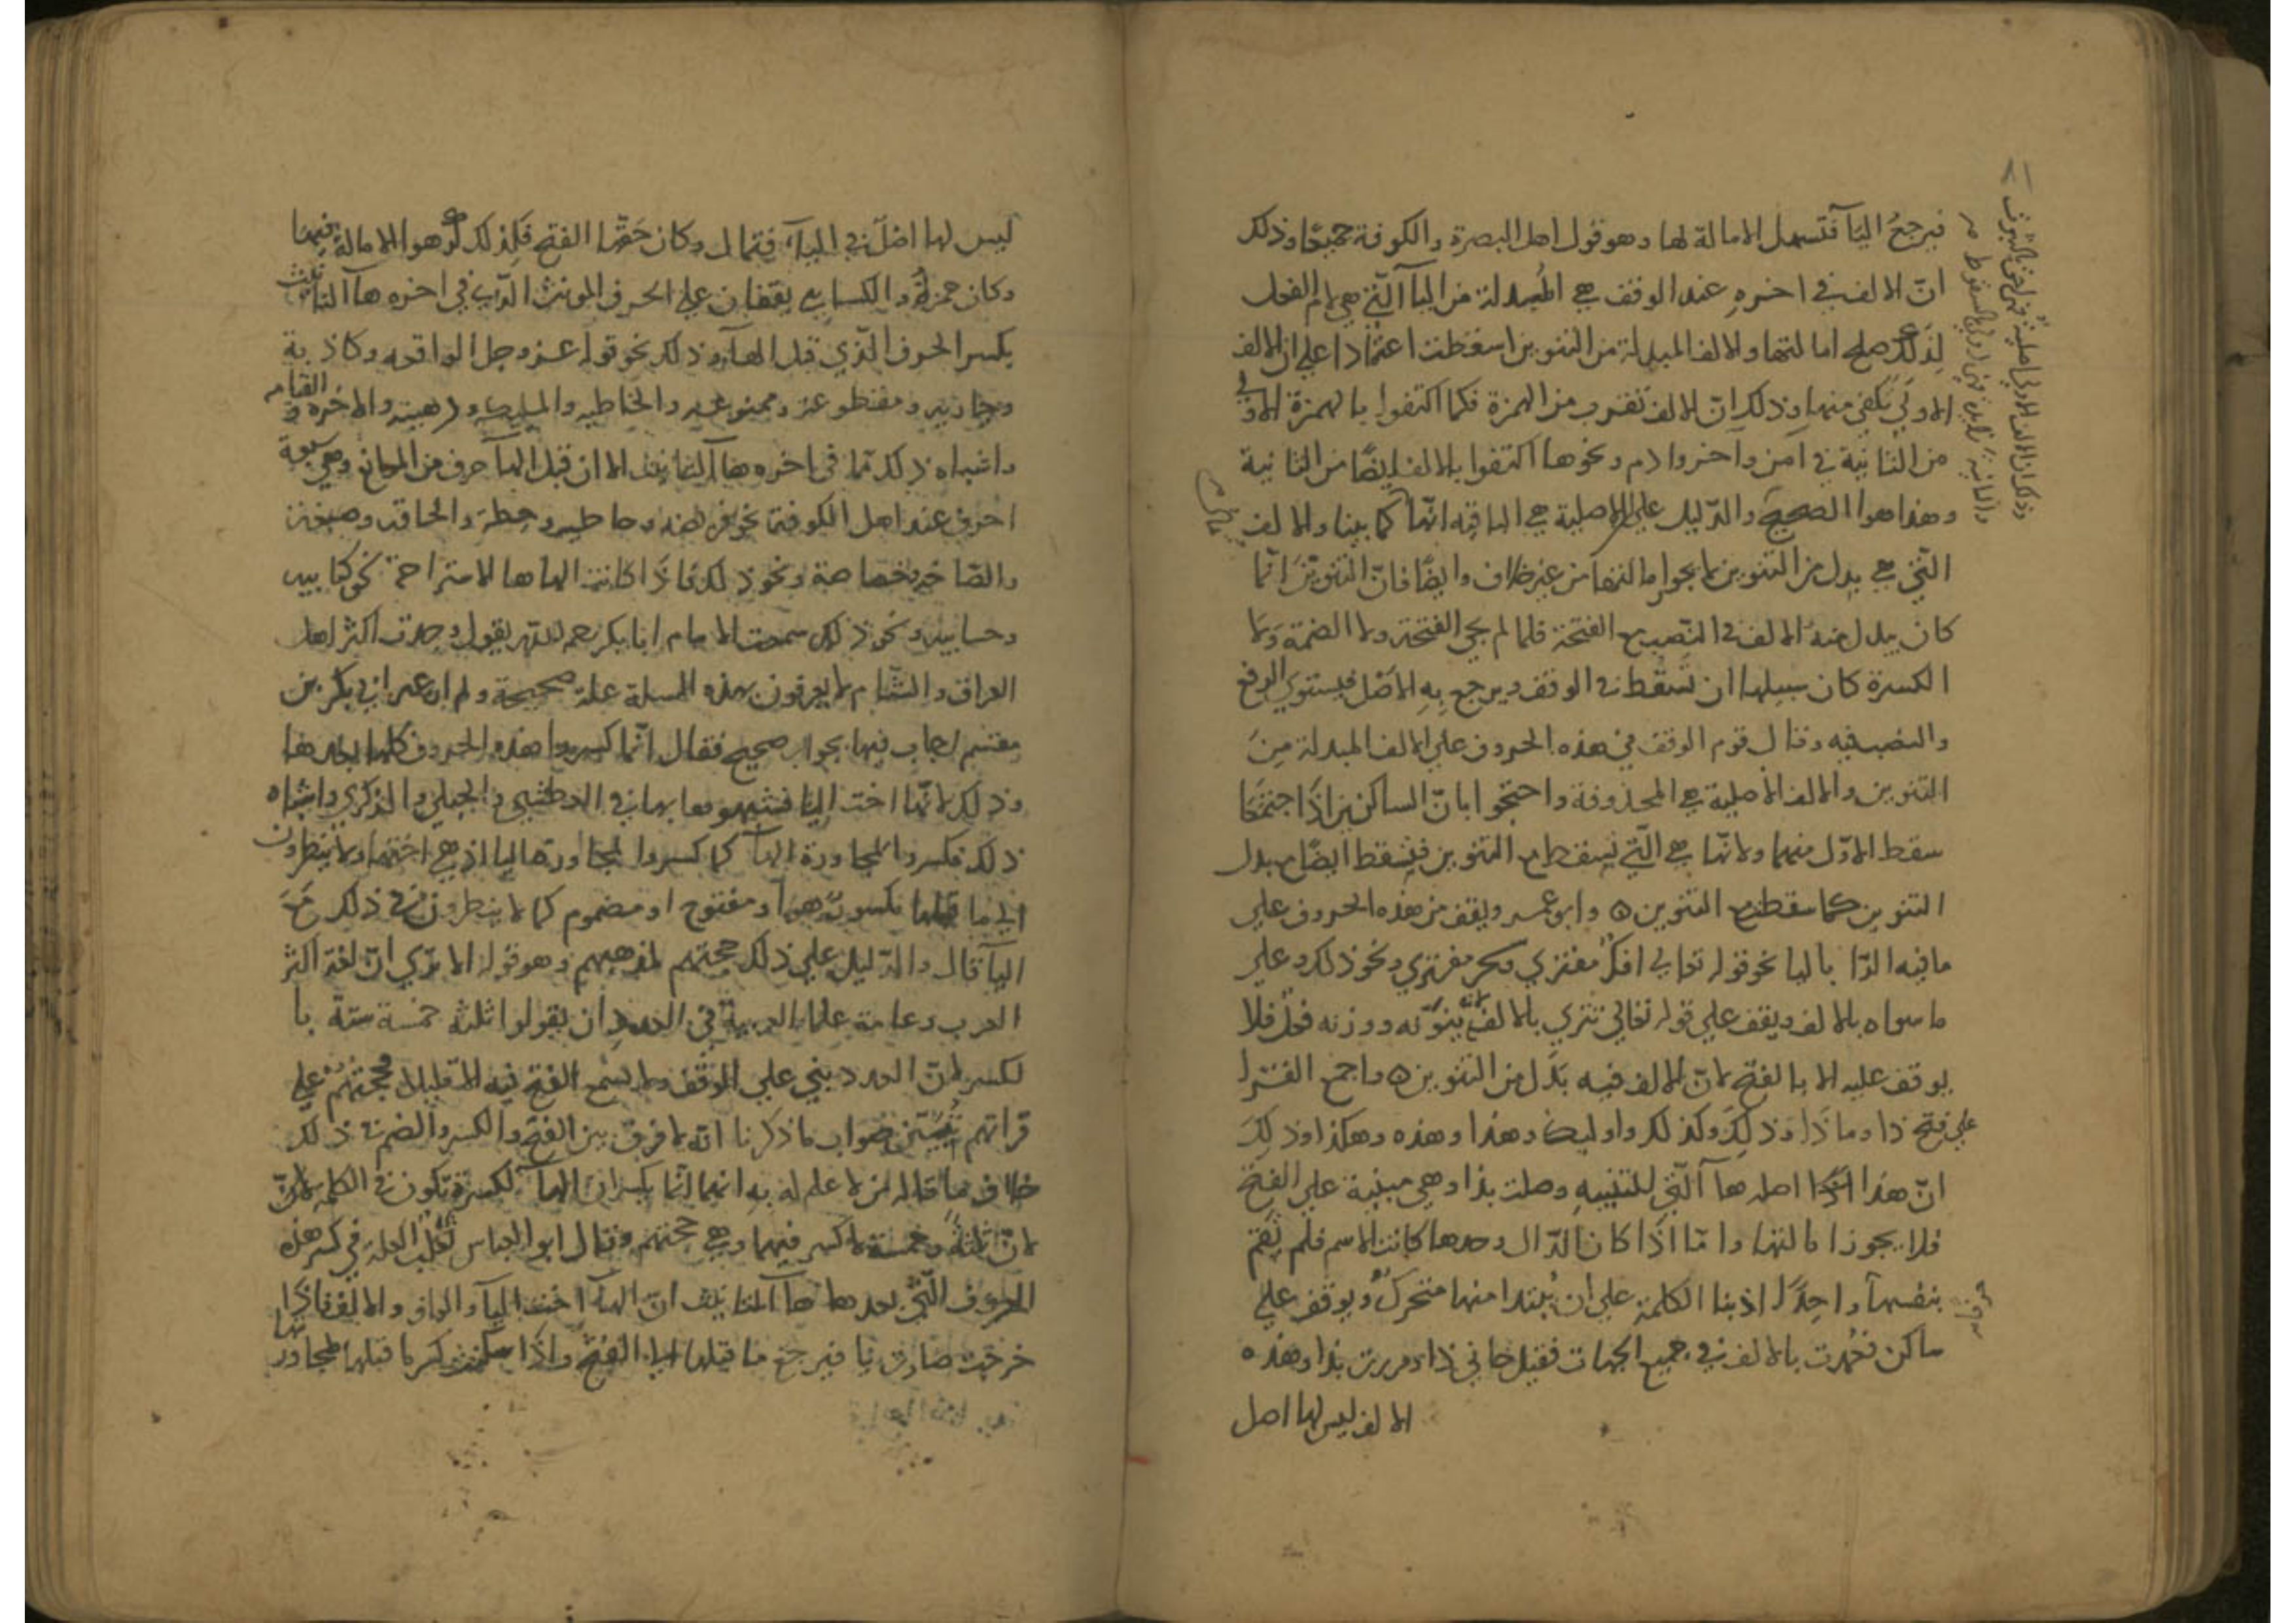 فيرجعُ اليآ فتسهل الامالة لها وهو قول اهل البصرة والكوفة جميعًا وذلك
انّ الالف في اخره عند الوقف هي المُبدلة من اليآ الّتي هي لام الفعل
لذلك صلح امالتها والالف المبدلة من التنوين اسقطت اعتمادا على ان الالف
الاولَى تكفي منها وذلك انّ الالف تقرب من الهمزة فكما اكتفوا بالهمزة الاولى
من الثانية في آمن وآخر وادم ونحوها اكتفوا بالالف ايضًا من الثانية
وهذا هوا الصحيح والدّليل على الاصلية هي الباقيه انّها كما بينا والالف
التّي هي بدل من التنوين لا يجوز امالتها من غير خلاف وايضًا فانّ التنوينَ انّما
كان يبدل منهُ الالف في النّصب مع الفتحة فلما لم يجي الفتحة ولا الضمة وَلا
الكسرة كان سبيلها ان تَسْقُط في الوقف ويرجع بِهِ الاصْل فيستوي الرفع
والنصب فيه وقال قوم الوقف في هذه الحروف علي الالف المبدلة مِنَ
التنوين والالف الاصلية هي المحذوفة واحتجوا بانّ الساكنين اذَا اجتمَعَا
سقط الاوّل منهما ولانّها هي الّتي تسقط مع التنوين فتسْقط ايضًا مع بدل
التنوين كما سقطت مع التنوين ۵ وابو عمر ويقف من هذه الحروف علي
ما فيه الرّا باليا نحو قوله تعالي افكٌ مفتري سحر مفتري ونحو ذلك وعلي
ما سواه بالالف ويقف علي قوله تعالي تتري بالالف لانه ينوّنه ووزنه فعْل فلا
يوقف عليه الا بالفتح لانّ الالف فيه بَدَل من التنوين ۵ واجمع القرا
علي فتح ذا وماذَا وذلِكَ وكذلك واوليك وهذا وهذه وهكذا وذلِكَ
انّ هذا اصله هآ الّتي للتنبيهِ وصلت بذا وهي مبنية علي الفتح
فلا يجوز امالتها وامّا اذَا كان الدّال وحدها كانت الاسم فلم تَقم
بنفسهآ واحِدًا اذ بنا الكلمة علي ان يُبتدا منها متحركٌ ويوقف علي
ساكن فعُمدت بالالف في جميع الجهات فقيل جاني ذا ومررت بذا وهذه
الالف ليس لها اصل
ليس لها اصْل في اليآء فتمال وكان حَقّها الفتح فَلِذلك كرهوا الامالة فيها
وكان حمزة والكسايي يقفان علي الحرف المونث الّذي في اخره هآ التانيث
بكسر الحرف الّذي قبل الهآ وذلك نحو قوله عز وجل الواقعه وكاذبة
وجاريه ومقطوعه وممنوعه والخاطيه والمليكه ورهينه والاخره والقيامه
واشباه ذلك ممّا في اخره هآ التانيث الا ان قبل الهآ حرف من الموانع وهي سبعة
احرف عند اهل الكوفة نحو فريضه وحاطيه وحطة والحاقه وصبغة
والصّاخه وخصاصة ونحو ذلك فاذَا كانت الهاها الاستراحة نحو كتابيه
وحسابيه ونحو ذلك سمعت الامام ابا بكر رحمه الله يقول وجدت اكثر اهل
العراق والشّام لا يعرفون بهذه المسلة علة صحيحة ولم ار غير ابي بكر بن
مقسم اجاب فيها بجواب صحيح فقال انّما كسروا هذه الحروف كلها
وذلك لانّها اخت اليا فشبهوها بها في العظمي والحبلي والذكري واشباه
ذلك فكسروا لمجاورة الهآ كما كسروا لمجاورة اليا اذ هي اختها ولا ينظرون
الي ما قبلها مكسورٌ هو او مفتوح او مضموم كما لا ينظرون في ذلك مَعَ
اليآ قال والدّليل علي ذلك حجّتهم لمذهبهم وهو قوله الا تري انّ لغة اكثر
العرب وعامة علما العربية في العدد ان يقولوا ثلثه خمسة ستة با
لكسر لانّ العدد بني علي الوقف ولم يسْمع الفتح فيه الا قليلا فحجّتهُمْ علي
قراتهم تُبيّن صواب ما ذكرنا انّه لا فرق بين الفتح والكسر والضم في ذلك
خلاف ما قاله من لا علم له بِهِ انهما انّما يكسران الهآ لكسرة تكون في الكلمه لانّ
لانّ ثلثة وخمسة لا كسر فيهما وهي حجتهم وقال ابو العباس ثعْلب العلة في كسر هذه
الحروف الّتي بعدها هآ التانيث انّ الهآ اخت اليآ والواو والالف فاذا
خرجت صارت يا فيرجع ما قبلها الي الفتح واذا سكنت كسر ما قبلها لمجاورتها